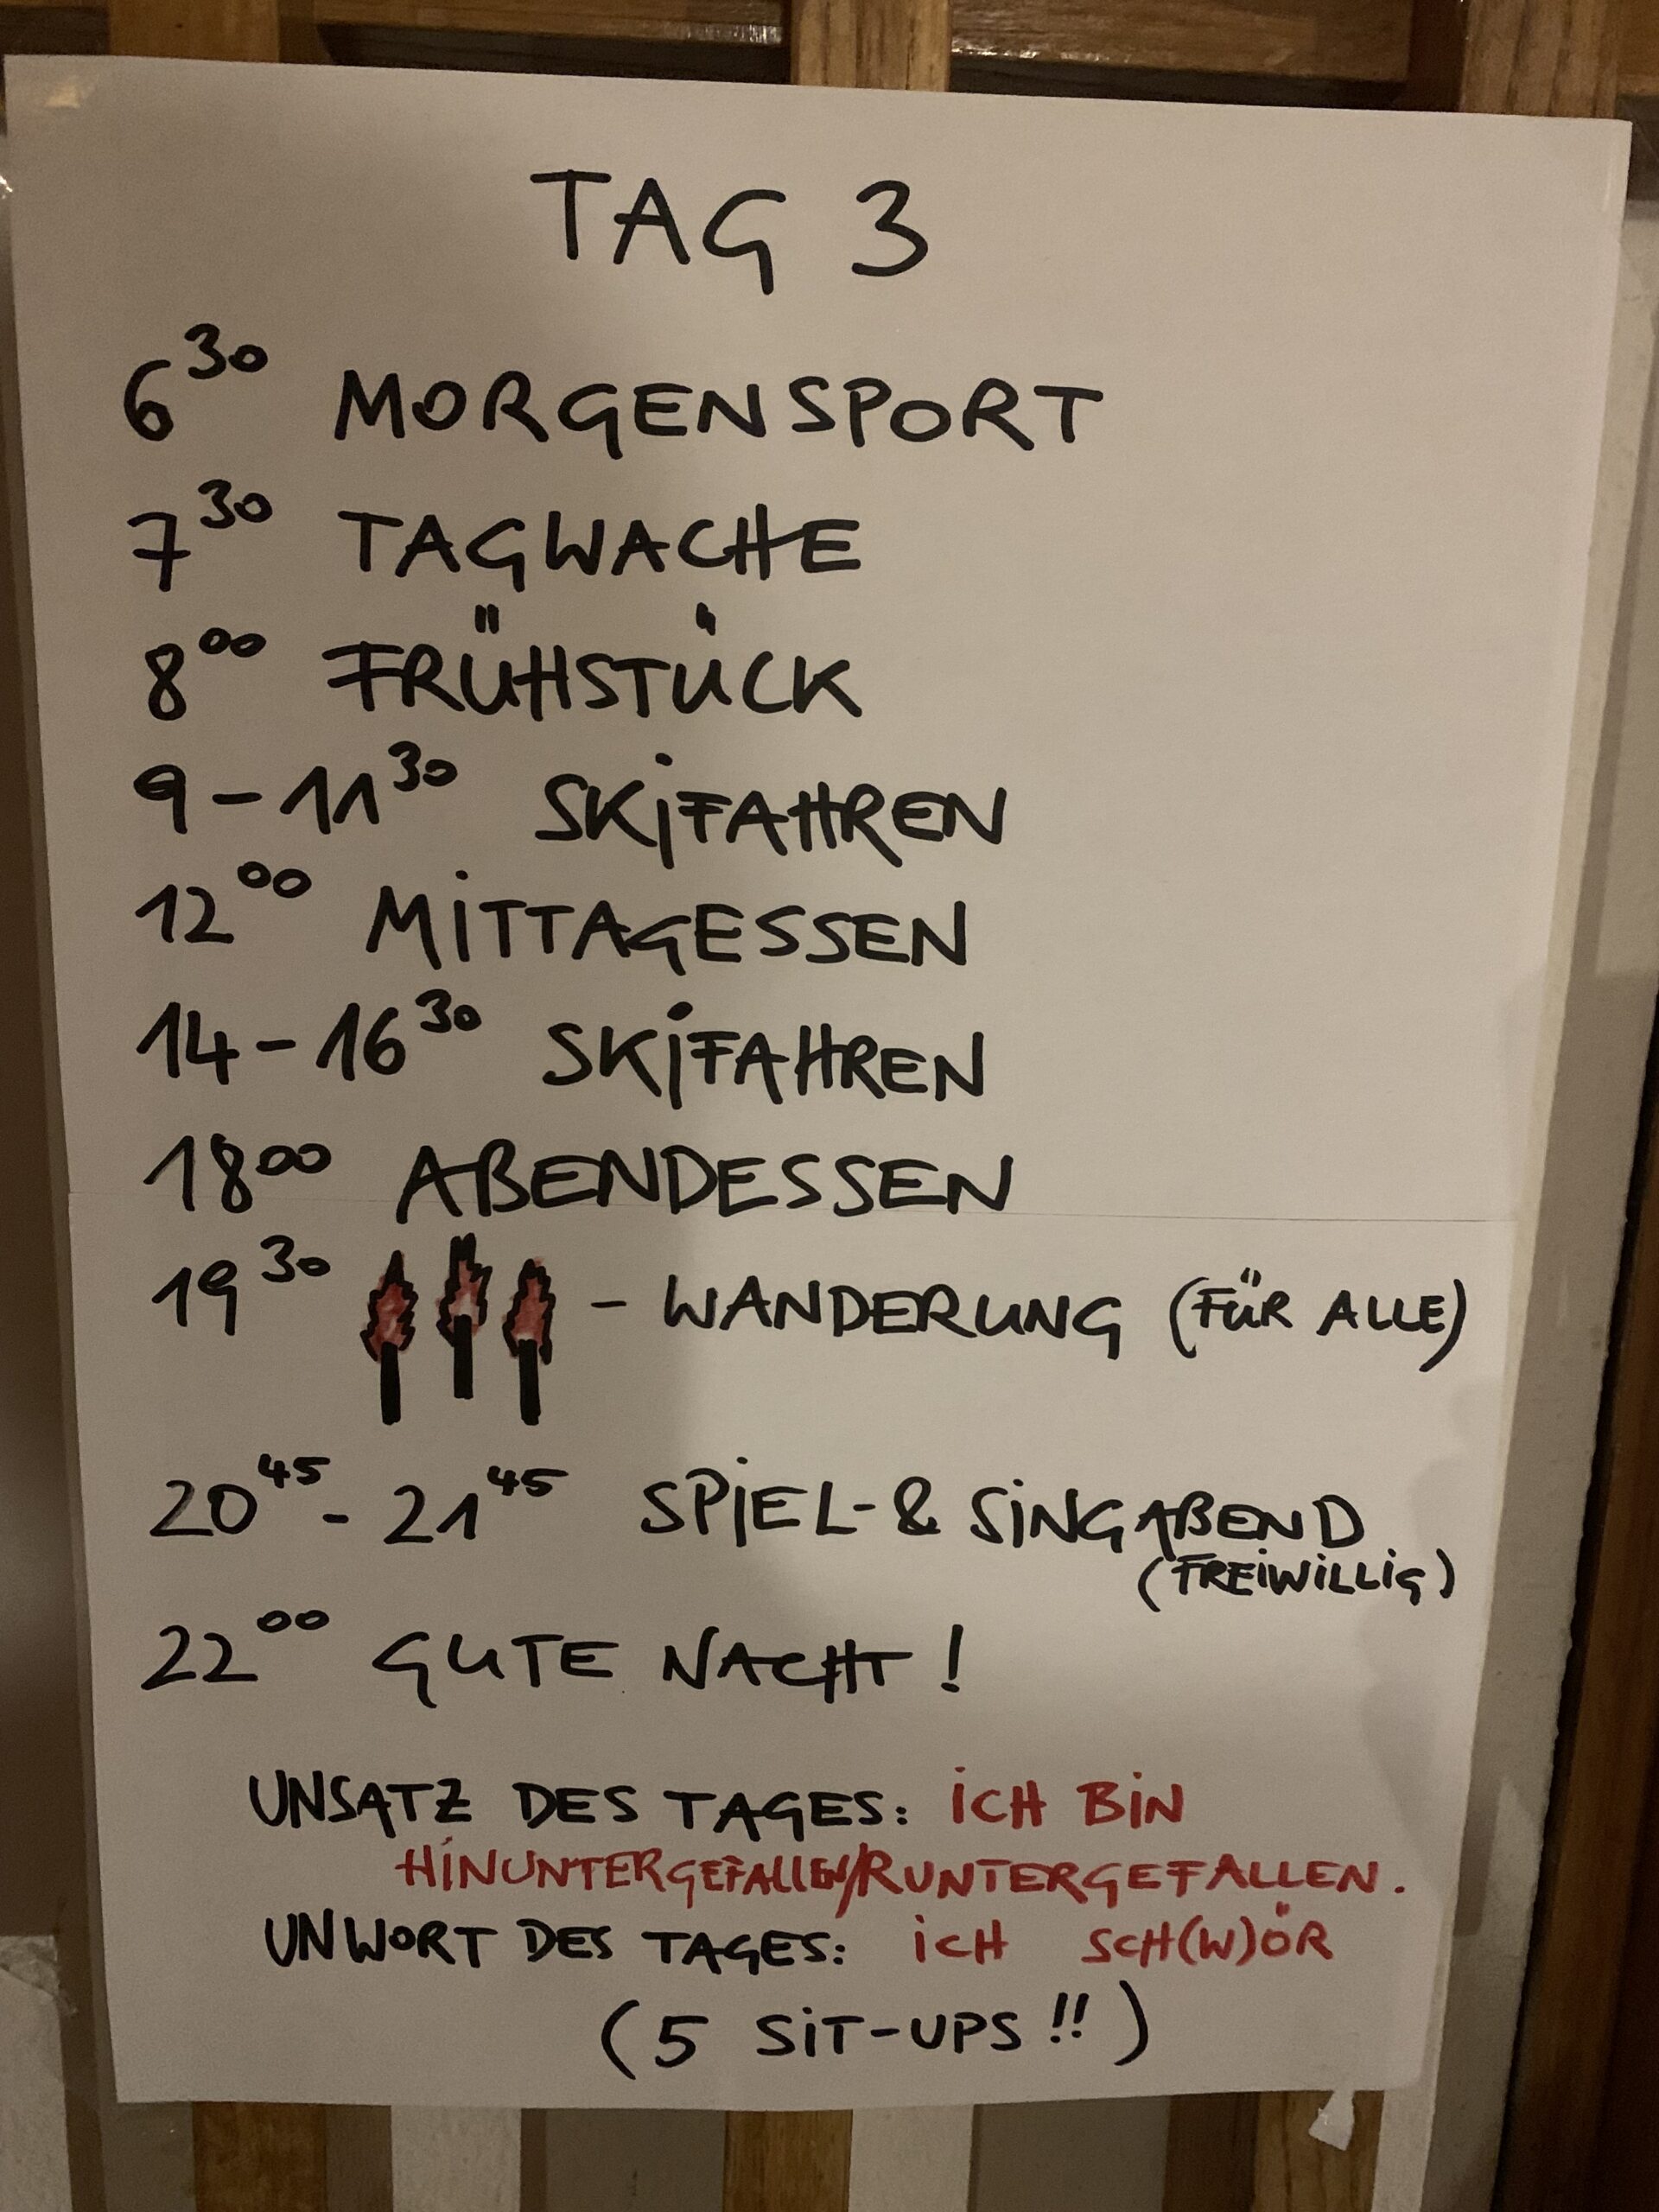 TAG 3
6³⁰ MORGENSPORT
7³⁰ TAGWACHE
8⁰⁰ FRÜHSTÜCK
9 - 11³⁰ SKiFAHREN
12⁰⁰ MiTTAGESSEN
14 - 16³⁰ SKiFAHREN
18⁰⁰ ABENDESSEN
19³⁰ - WANDERUNG (FÜR ALLE)
20⁴⁵ - 21⁴⁵ SPiEL- & SiNGABEND
(FREiWiLLiG)
22⁰⁰ GUTE NACHT!
UNSATZ DES TAGES: iCH BiN
HiNUNTERGEFALLEN/RUNTERGEFALLEN.
UNWORT DES TAGES: iCH SCH(W)ÖR
(5 SiT-UPS!!)